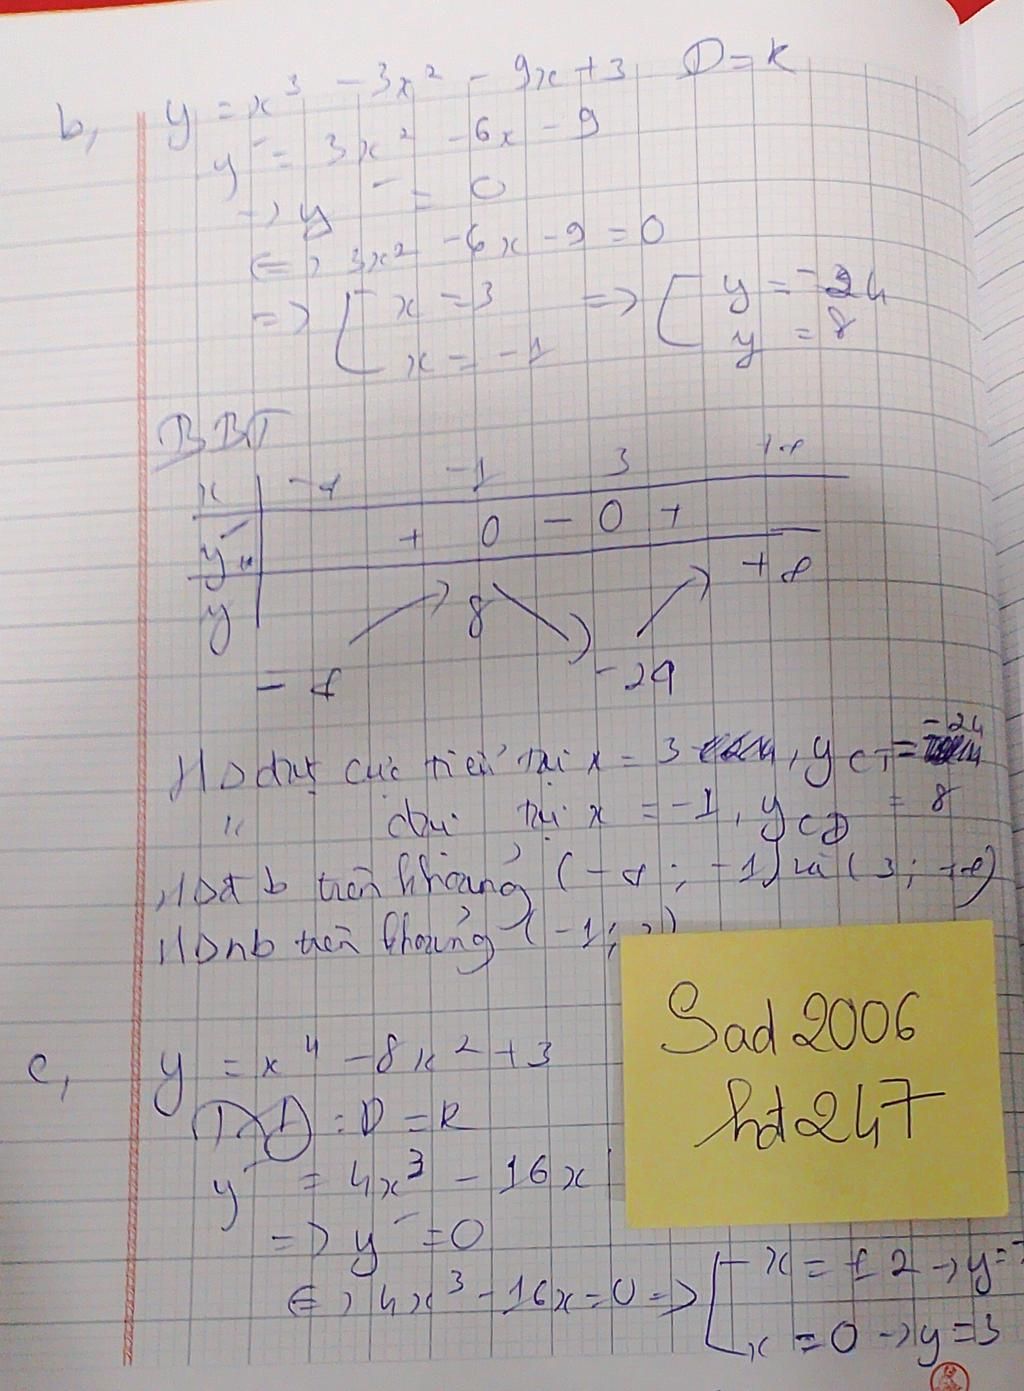 b, y = x³ - 3x² - 9x + 3 D = R
y' = 3x² - 6x - 9
=> y' = 0
<=> 3x² - 6x - 9 = 0
=> [ x = 3 => [ y = -24
x = -1 y = 8
BBT
x -∞ -1 3 +∞
y' + 0 - 0 +
y -∞ 8 -24 +∞
HS đạt cực tiểu tại x = 3, y CT = -24
" đại tại x = -1, y CĐ = 8
HSđb trên khoảng (-∞; -1) và (3; +∞)
HSnb trên khoảng (-1;
c, y = x⁴ - 8x² + 3
TXĐ : D = R
y' = 4x³ - 16x
=> y' = 0
<=> 4x³ - 16x = 0 => [ x = ±2 -> y =
x = 0 -> y = 3
Sad2006
hđ247